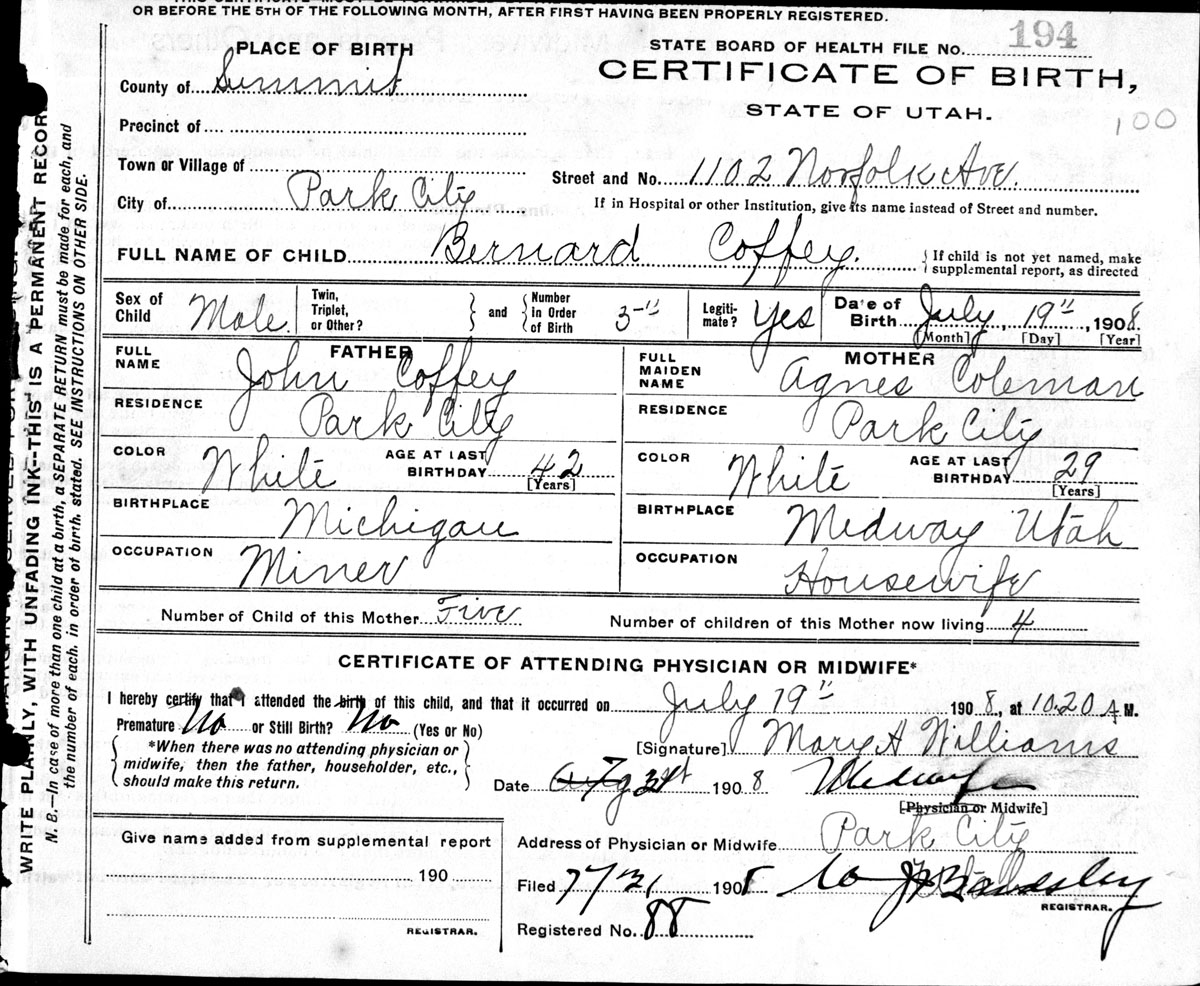 OR BEFORE THE 5TH OF THE FOLLOWING MONTH, AFTER FIRST HAVING BEEN PROPERLY REGISTERED.
PLACE OF BIRTH
County of Summit
Precinct of
Town or Village of
City of Park City
STATE BOARD OF HEALTH FILE No. 194
CERTIFICATE OF BIRTH,
STATE OF UTAH.
100
Street and No. 1102 Norfolk Ave.
If in Hospital or other Institution, give its name instead of Street and number.
FULL NAME OF CHILD Bernard Coffey. { If child is not yet named, make
supplemental report, as directed
Sex of Child Male. Twin, Triplet, or Other? } and { Number in Order of Birth Legiti-mate? Yes Date of Birth July, 19", 1908.
[Month] [Day] [Year]
FATHER
FULL NAME John Coffey
RESIDENCE Park City
COLOR White AGE AT LAST BIRTHDAY 42
[Years]
BIRTHPLACE Michigan
OCCUPATION Miner
MOTHER
FULL MAIDEN NAME Agnes Coleman
RESIDENCE Park City
COLOR White AGE AT LAST BIRTHDAY 29
[Years]
BIRTHPLACE Midway Utah
OCCUPATION Housewife
Number of Child of this Mother Five Number of children of this Mother now living 4
CERTIFICATE OF ATTENDING PHYSICIAN OR MIDWIFE*
I hereby certify that I attended the birth of this child, and that it occurred on July 19" 1908, at 10.20 A M.
Premature No or Still Birth? No (Yes or No)
{ *When there was no attending physician or
midwife, then the father, householder, etc.,
should make this return. }
[Signature] Mary A Williams
Date 1908
[Physician or Midwife]
Address of Physician or Midwife Park City
Give name added from supplemental report
190
REGISTRAR.
Filed 1908
REGISTRAR.
Registered No. 88
WRITE PLAINLY, WITH UNFADING INK--THIS IS A PERMANENT RECORD
N. B.—In case of more than one child at a birth, a SEPARATE RETURN must be made for each, and
the number of each, in order of birth, stated. SEE INSTRUCTIONS ON OTHER SIDE.